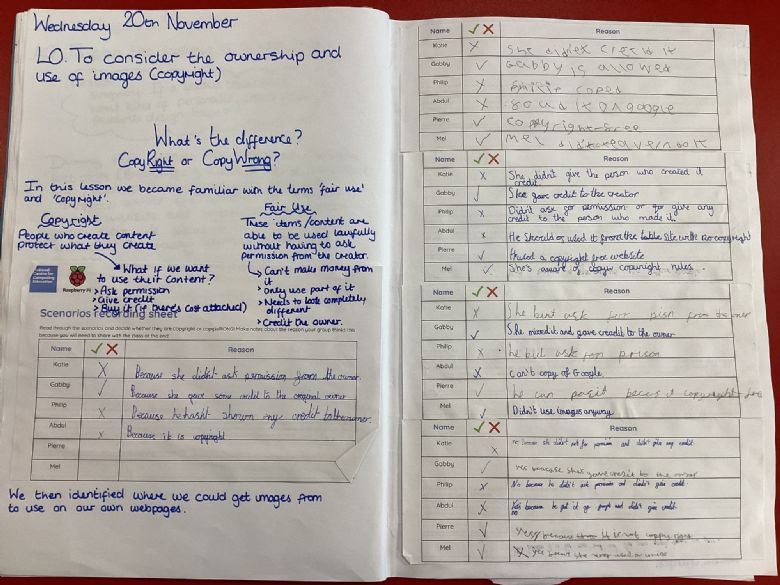 Wednesday 20th November
LO. To consider the ownership and
use of images (copyright)
What's the difference?
CopyRight or CopyWrong?
In this lesson we became familiar with the terms 'fair use'
and 'copyright'.
Copyright
People who create content
protect what they create
What if we want
to use their content?
> Ask permission
> Give credit
> Buy it (if there's cost attached)
Fair Use
These items/content are
able to be used lawfully
without having to ask
permission from the creator.
Can't make money from
it
> Only use part of it
> Needs to look completely
different
> Credit the owner.
National
Centre for
Computing
Education
Raspberry Pi
Scenarios recording sheet
Read through the scenarios and decide whether they are copyright or copywRONG! Make notes about the reason your group thinks this
because you will need to share with the class at the end.
Name ✓ ✗ Reason
Katie ✗ Because she didn't ask permission from the owner.
Gabby ✓ Because she gave some credit to the original owner
Philip ✗ Because he hasn't shown any credit to the owner.
Abdul ✗ Because it is copyright
Pierre
Mel
We then identified where we could get images from
to use on our own webpages.
Name ✓ ✗ Reason
Katie ✗ She didn't it
Gabby ✓ Gabby is allowed
Philip ✗
Abdul ✗ google
Pierre ✓ Copyright-free
Mel ✓ Mel
Name ✓ ✗ Reason
Katie ✗ She didn't give the person who created it
credit.
Gabby ✓ She gave credit to the creator
Philip ✗ Didn't ask for permission or give any
credit to the person who made it.
Abdul ✗ He should used it from the site with no copyright
Pierre ✓ used a copyright free website
Mel ✓ She's aware of copyright rules.
Name ✓ ✗ Reason
Katie ✗ She ask from the owner
Gabby ✓ She mixed it and gave credit to the owner
Philip ✗ he ask for
Abdul ✗ Can't copy of Google.
Pierre ✓ he can it
Mel ✓ Didn't use images anyway.
Name ✓ ✗ Reason
Katie ✗ she didn't and didn't give any credit.
Gabby ✓ yes because she gave credit to the
Philip ✗ No because he didn't ask permission and didn't give credit.
Abdul ✗ because he got it and didn't give credit.
Pierre ✓ because
Mel ✓ yes